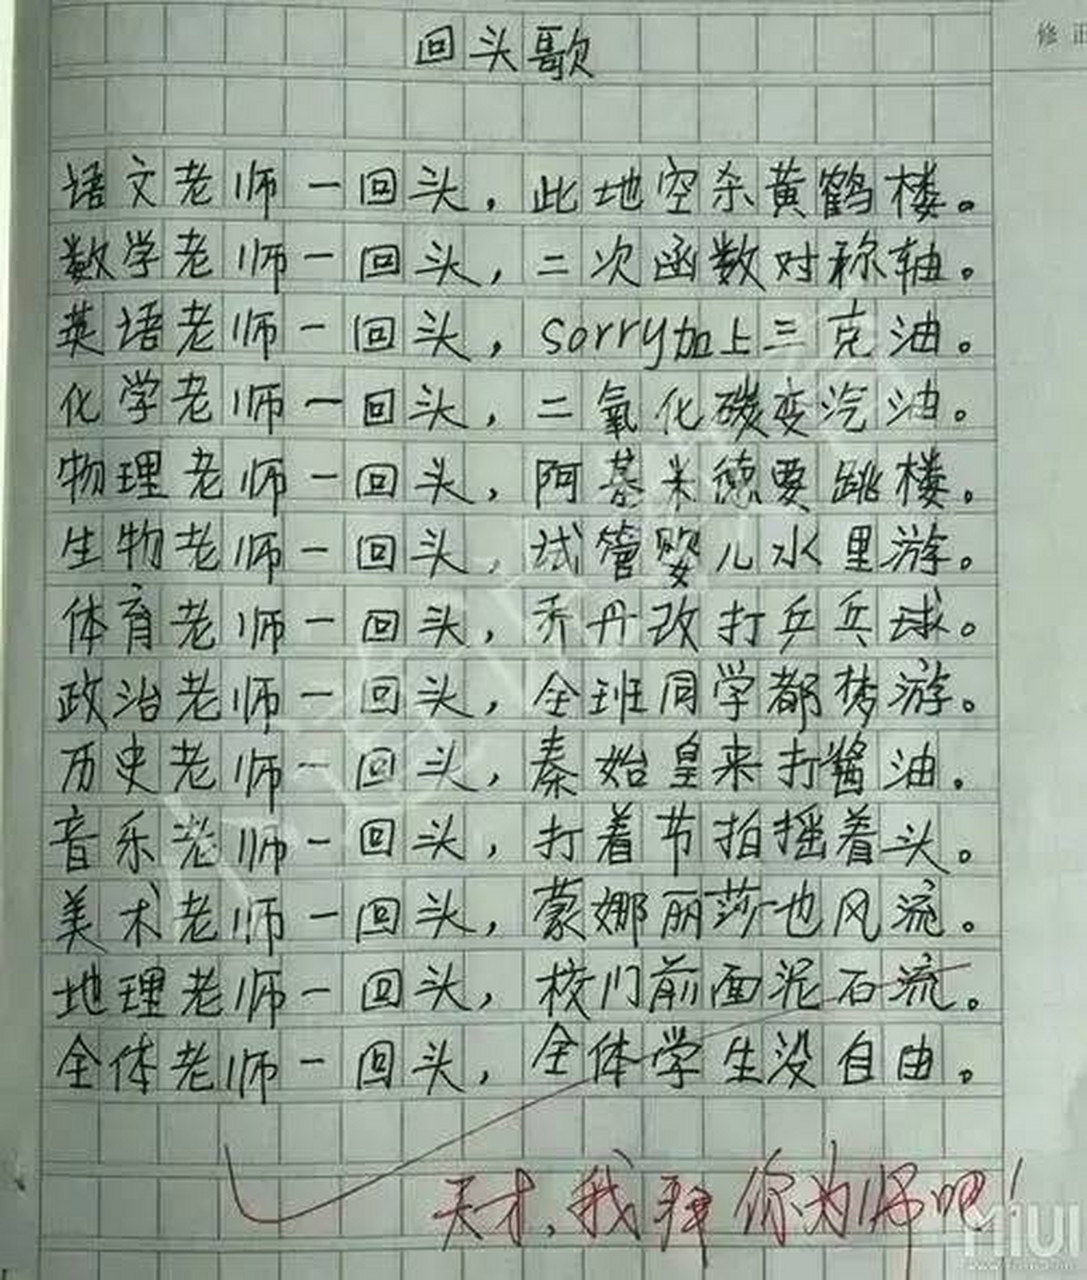 修正
回头歌
语文老师一回头，此地空杀黄鹤楼。
数学老师一回头，二次函数对称轴。
英语老师一回头，sorry加上三克油。
化学老师一回头，二氧化碳变汽油。
物理老师一回头，阿基米德要跳楼。
生物老师一回头，试管婴儿水里游。
体育老师一回头，乔丹改打乒乓球。
政治老师一回头，全班同学都梦游。
历史老师一回头，秦始皇来打酱油。
音乐老师一回头，打着节拍摇着头。
美术老师一回头，蒙娜丽莎也风流。
地理老师一回头，校门前面泥石流。
全体老师一回头，全体学生没自由。
天才，我拜你为师吧！
MIUI